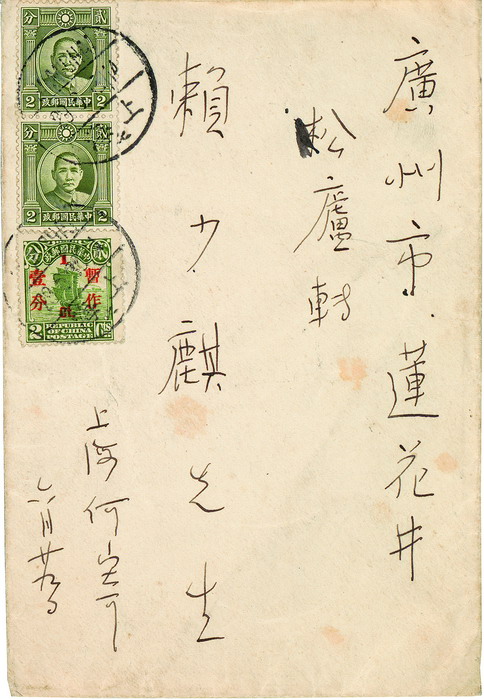 廣州市蓮花井
松廬轉
賴少麒先生
上海何寄
貳分
中華民國郵政
2 2
貳分
中華民國郵政
2 2
貳分
中華民國郵政
暫作壹分
1
2 Cts
REPUBLIC OF CHINA POSTAGE
上
上